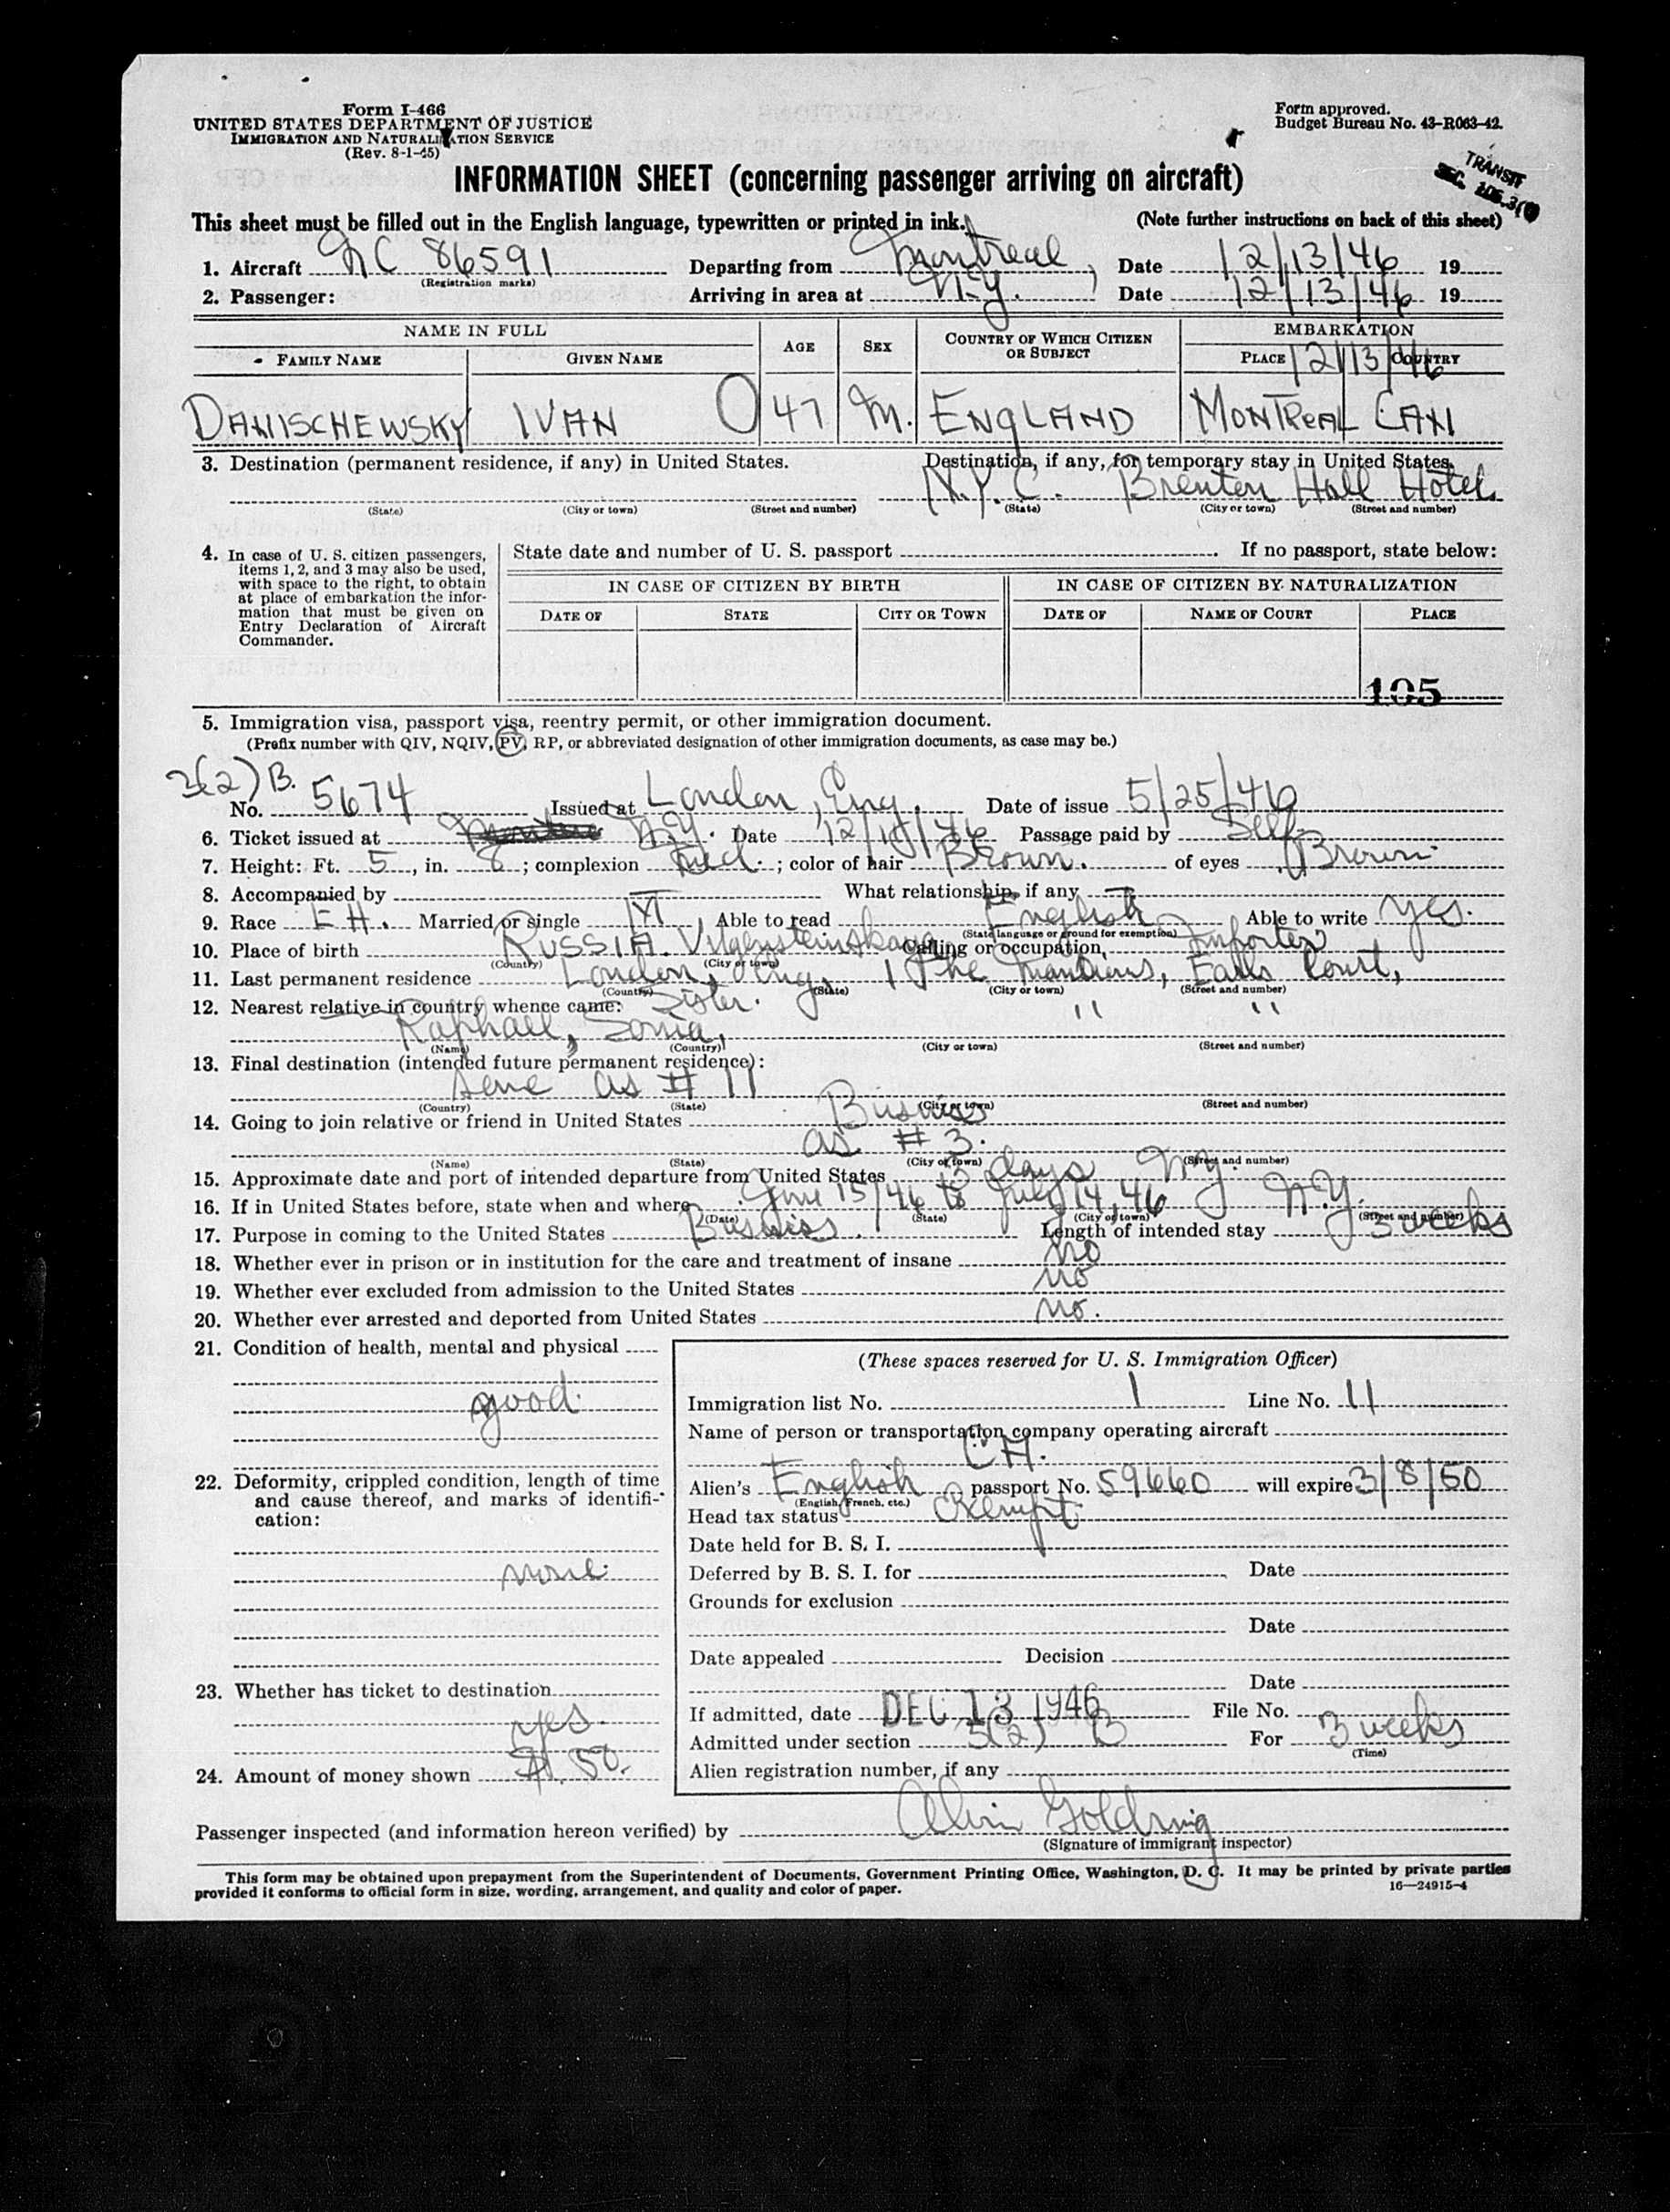 Form I-466
UNITED STATES DEPARTMENT OF JUSTICE
IMMIGRATION AND NATURALIZATION SERVICE
(Rev. 8-1-45)
Form approved.
Budget Bureau No. 43-R063-42.
TRANSIT
INFORMATION SHEET (concerning passenger arriving on aircraft)
This sheet must be filled out in the English language, typewritten or printed in ink. (Note further instructions on back of this sheet)
1. Aircraft NC 86591 Departing from Montreal, Date 12/13/46 19
(Registration marks)
2. Passenger: Arriving in area at N.Y. Date 12/13/46 19
NAME IN FULL AGE SEX COUNTRY OF WHICH CITIZEN OR SUBJECT EMBARKATION
FAMILY NAME GIVEN NAME PLACE 12/13/46 COUNTRY
DANISCHEWSKY IVAN O 47 M. ENGLAND MONTREAL CAN
3. Destination (permanent residence, if any) in United States. Destination, if any, for temporary stay in United States.
N.Y.C. Brenton Hall Hotel
(State) (City or town) (Street and number) (State) (City or town) (Street and number)
4. In case of U. S. citizen passengers, items 1, 2, and 3 may also be used, with space to the right, to obtain at place of embarkation the information that must be given on Entry Declaration of Aircraft Commander.
State date and number of U. S. passport . If no passport, state below:
IN CASE OF CITIZEN BY BIRTH IN CASE OF CITIZEN BY NATURALIZATION
DATE OF STATE CITY OR TOWN DATE OF NAME OF COURT PLACE
105
5. Immigration visa, passport visa, reentry permit, or other immigration document.
(Prefix number with QIV, NQIV, PV, RP, or abbreviated designation of other immigration documents, as case may be.)
3(2) B.
No. 5674 Issued at London, Eng. Date of issue 5/25/46
6. Ticket issued at N.Y. Date Passage paid by Self
7. Height: Ft. 5, in. 8; complexion Med.; color of hair Brown. of eyes Brown.
8. Accompanied by — What relationship, if any —
9. Race E H. Married or single M Able to read English Able to write yes.
(State language or ground for exemption)
10. Place of birth RUSSIA. Calling or occupation, Importer
(Country) (City or town)
11. Last permanent residence London, Eng. 1 The Mansions, Earls Court,
(Country) (State) (City or town) (Street and number)
12. Nearest relative in country whence came: Sister. " "
Raphael, Sonia,
(Name) (Country) (City or town) (Street and number)
13. Final destination (intended future permanent residence):
same as # 11
(Country) (State) (City or town) (Street and number)
14. Going to join relative or friend in United States Business
as # 3.
(Name) (State) (City or town) (Street and number)
15. Approximate date and port of intended departure from United States days N.Y.
16. If in United States before, state when and where June 15/46 to July 14, 46 N.Y.
(Date) (State) (City or town) (Street and number)
17. Purpose in coming to the United States Business. Length of intended stay 3 weeks
18. Whether ever in prison or in institution for the care and treatment of insane no
19. Whether ever excluded from admission to the United States no
20. Whether ever arrested and deported from United States no.
21. Condition of health, mental and physical
good.
22. Deformity, crippled condition, length of time and cause thereof, and marks of identification:
none.
23. Whether has ticket to destination
yes.
24. Amount of money shown $ 50.
(These spaces reserved for U. S. Immigration Officer)
Immigration list No. 1 Line No. 11
Name of person or transportation company operating aircraft
C.A.
Alien's English passport No. 59660 will expire 3/8/50
(English, French, etc.)
Head tax status Exempt
Date held for B. S. I.
Deferred by B. S. I. for Date
Grounds for exclusion
Date
Date appealed Decision
Date
If admitted, date DEC 13 1946 File No.
Admitted under section 3(2) B For 3 weeks
(Time)
Alien registration number, if any
Passenger inspected (and information hereon verified) by Alvin Goldring
(Signature of immigrant inspector)
This form may be obtained upon prepayment from the Superintendent of Documents, Government Printing Office, Washington, D. C. It may be printed by private parties
provided it conforms to official form in size, wording, arrangement, and quality and color of paper. 16—24915-4